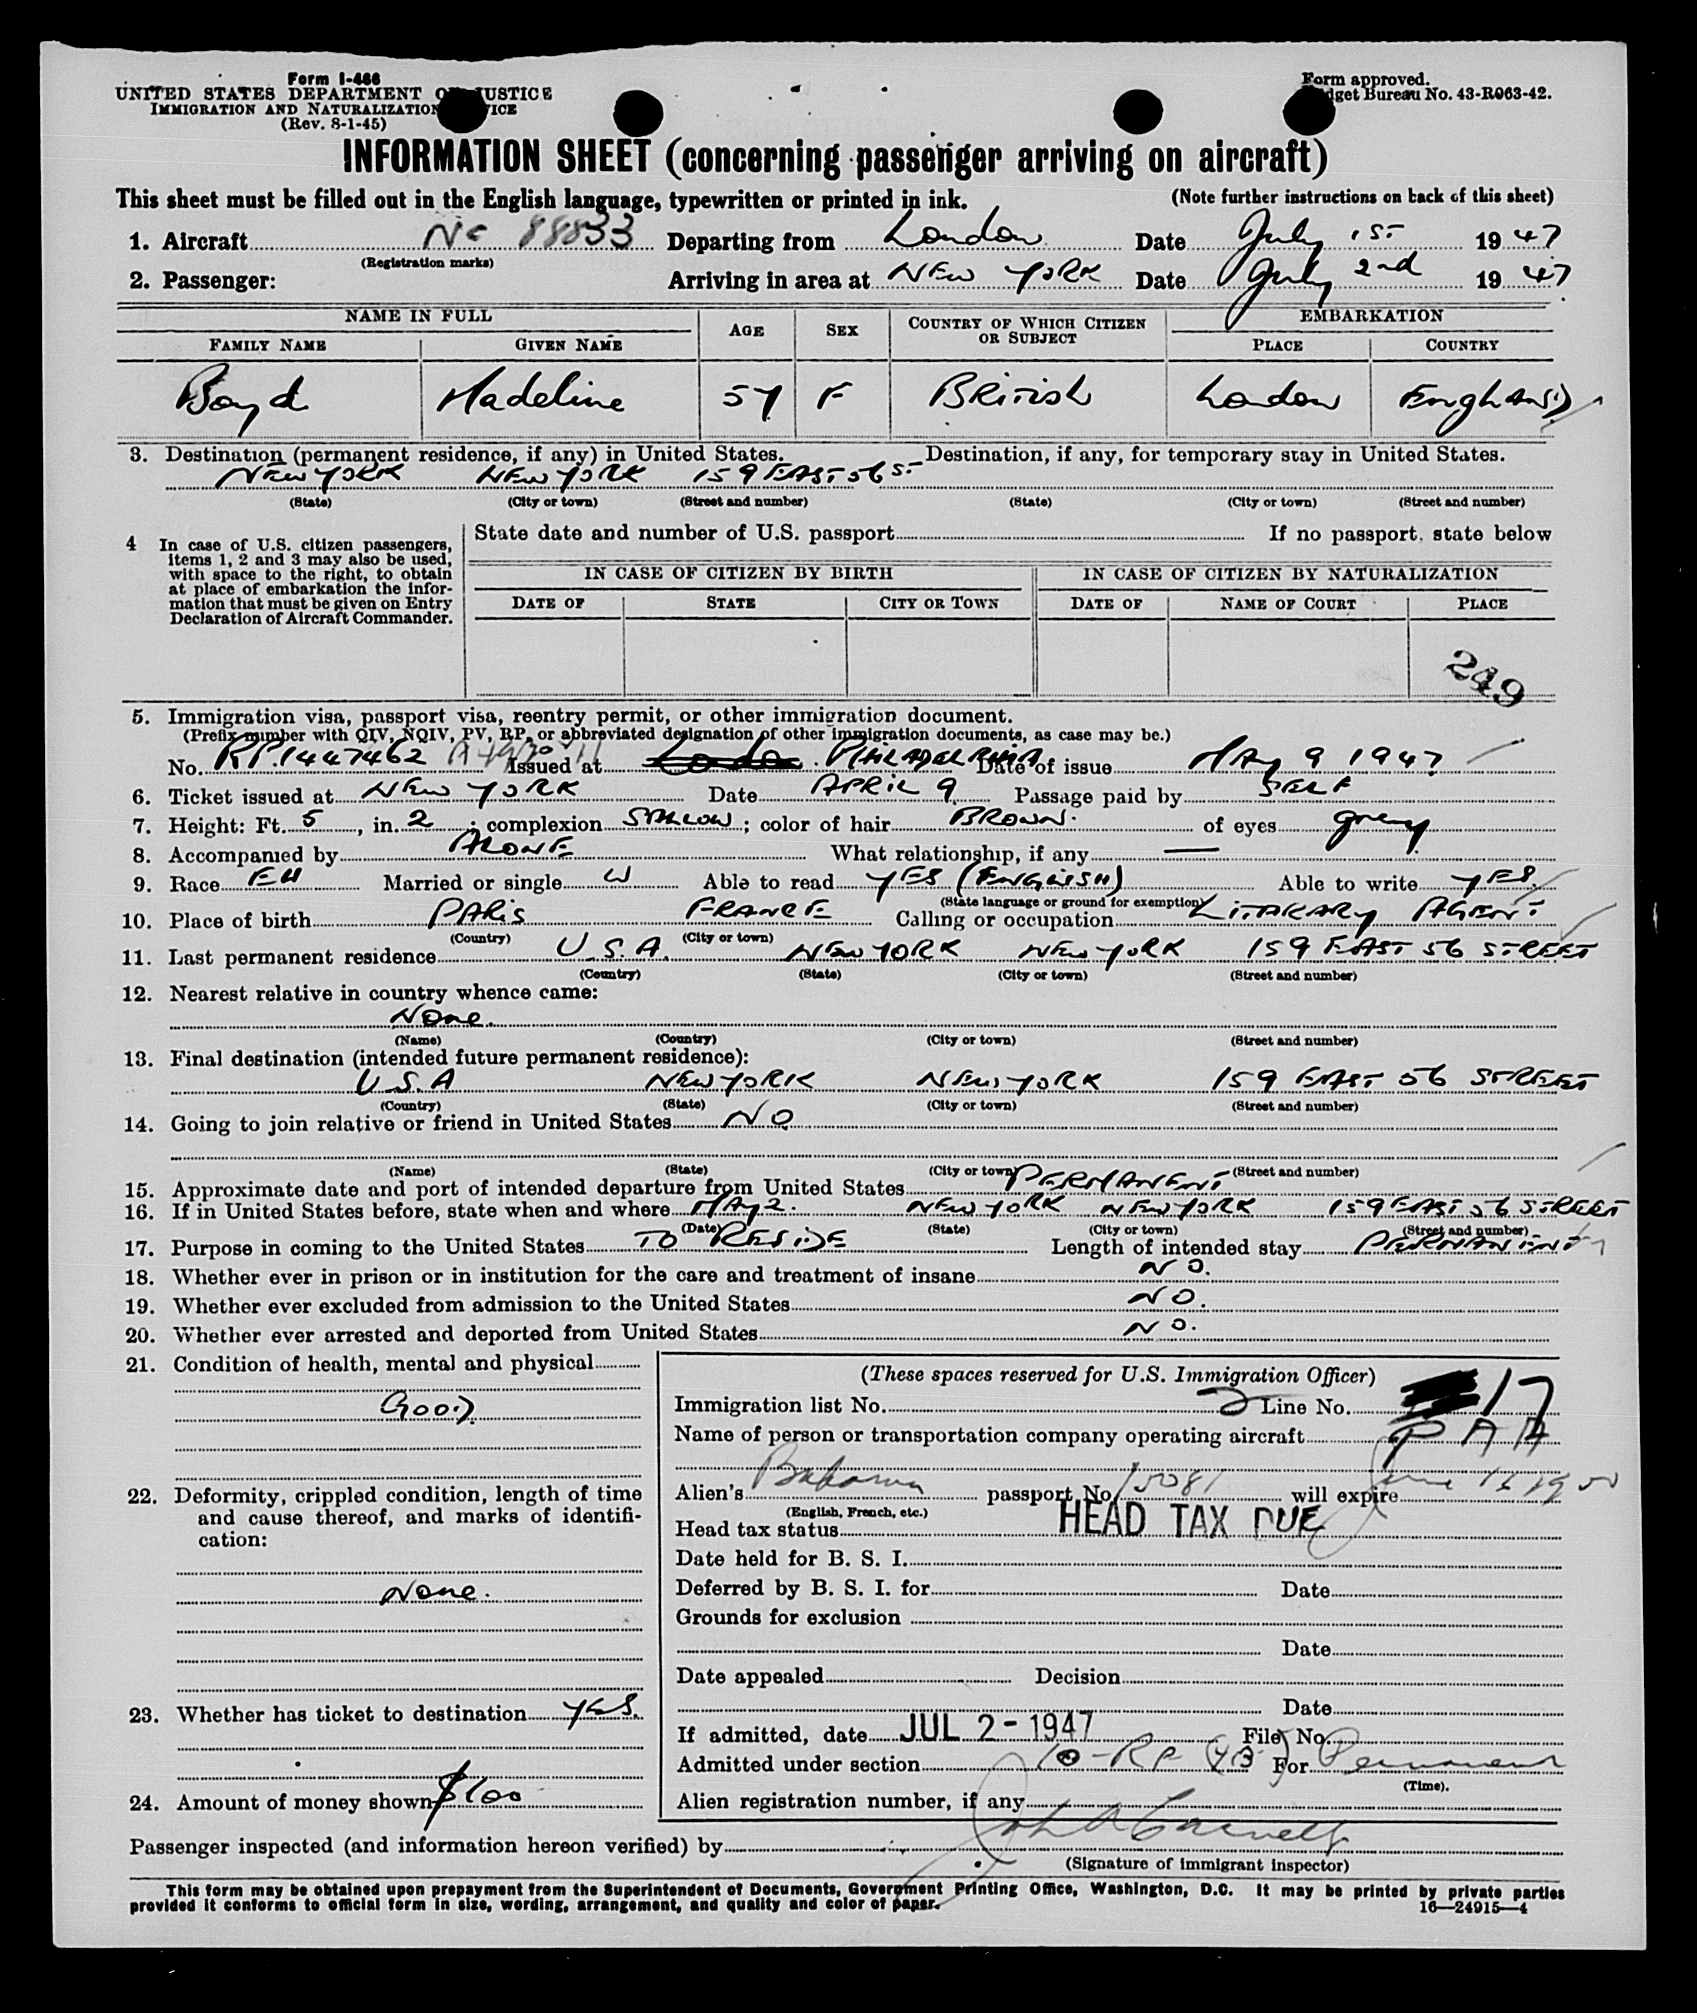 Form I-466
UNITED STATES DEPARTMENT OF JUSTICE
IMMIGRATION AND NATURALIZATION SERVICE
(Rev. 8-1-45)
Form approved.
Budget Bureau No. 43-R063-42.
INFORMATION SHEET (concerning passenger arriving on aircraft)
This sheet must be filled out in the English language, typewritten or printed in ink. (Note further instructions on back of this sheet)
1. Aircraft NC 88833 Departing from London Date July 1st 1947
(Registration marks)
2. Passenger: Arriving in area at NEW YORK Date July 2nd 1947
NAME IN FULL AGE SEX COUNTRY OF WHICH CITIZEN OR SUBJECT EMBARKATION
FAMILY NAME GIVEN NAME PLACE COUNTRY
Boyd Madeline 57 F BRITISH London ENGLAND
3. Destination (permanent residence, if any) in United States. Destination, if any, for temporary stay in United States.
NEW YORK NEW YORK 159 EAST 56 ST
(State) (City or town) (Street and number) (State) (City or town) (Street and number)
4 In case of U.S. citizen passengers, items 1, 2 and 3 may also be used, with space to the right, to obtain at place of embarkation the information that must be given on Entry Declaration of Aircraft Commander.
State date and number of U.S. passport If no passport, state below
IN CASE OF CITIZEN BY BIRTH IN CASE OF CITIZEN BY NATURALIZATION
DATE OF STATE CITY OR TOWN DATE OF NAME OF COURT PLACE
249
5. Immigration visa, passport visa, reentry permit, or other immigration document.
(Prefix number with QIV, NQIV, PV, RP, or abbreviated designation of other immigration documents, as case may be.)
No. RP.1447462 Issued at PHILADELPHIA Date of issue MAy 9 1947
6. Ticket issued at NEW YORK Date APRIL 9 Passage paid by SELF
7. Height: Ft. 5, in. 2; complexion SALLOW; color of hair BROWN. of eyes grey
8. Accompanied by ALONE What relationship, if any —
9. Race Married or single W Able to read YES (ENGLISH) Able to write YES
(State language or ground for exemption)
10. Place of birth PARIS FRANCE Calling or occupation LITARARY AGENT
(Country) (City or town)
11. Last permanent residence U.S.A. NEW YORK NEW YORK 159 EAST 56 STREET
(Country) (State) (City or town) (Street and number)
12. Nearest relative in country whence came:
None.
(Name) (Country) (City or town) (Street and number)
13. Final destination (intended future permanent residence):
U.S.A NEW YORK NEW YORK 159 EAST 56 STREET
(Country) (State) (City or town) (Street and number)
14. Going to join relative or friend in United States NO
(Name) (State) (City or town) (Street and number)
15. Approximate date and port of intended departure from United States PERMANENT
16. If in United States before, state when and where MAY 2. NEW YORK NEW YORK 159 EAST 56 STREET
(Date) (State) (City or town) (Street and number)
17. Purpose in coming to the United States TO RESIDE Length of intended stay PERMANENT
18. Whether ever in prison or in institution for the care and treatment of insane NO.
19. Whether ever excluded from admission to the United States NO.
20. Whether ever arrested and deported from United States NO.
21. Condition of health, mental and physical
GOOD
22. Deformity, crippled condition, length of time and cause thereof, and marks of identification:
None.
23. Whether has ticket to destination YES.
24. Amount of money shown $100
(These spaces reserved for U.S. Immigration Officer)
Immigration list No. 2 Line No. 17
Name of person or transportation company operating aircraft PAA
Alien's Bahama passport No. 15081 will expire June 16 1950
(English, French, etc.)
Head tax status HEAD TAX DUE
Date held for B. S. I.
Deferred by B. S. I. for Date
Grounds for exclusion
Date
Date appealed Decision
Date
If admitted, date JUL 2 - 1947 File No.
Admitted under section 10-RP (4B) For Permanent
(Time).
Alien registration number, if any
Passenger inspected (and information hereon verified) by
(Signature of immigrant inspector)
This form may be obtained upon prepayment from the Superintendent of Documents, Government Printing Office, Washington, D.C. It may be printed by private parties
provided it conforms to official form in size, wording, arrangement, and quality and color of paper.
16—24915—4